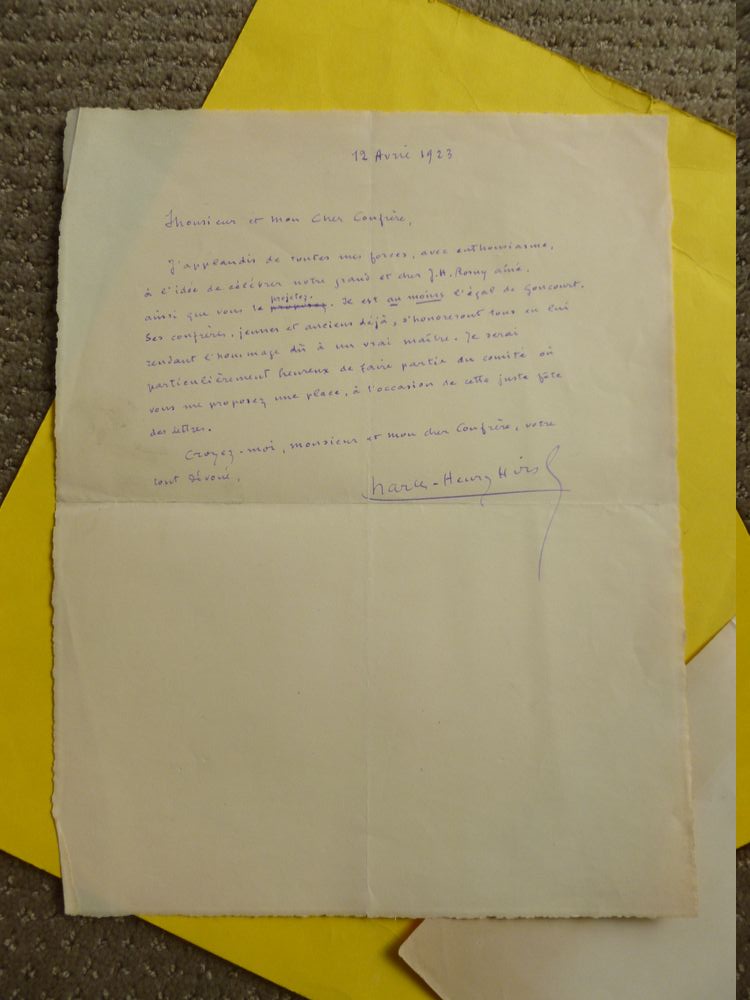 12 Avril 1923
Monsieur et Mon Cher Confrère,
J'applaudis de toutes mes forces, avec enthousiasme,
à l'idée de célébrer notre grand et cher J.H. Rosny aîné,
ainsi que vous le proposez projetez. Il est au moins l'égal de Goncourt.
Ses confrères, jeunes et anciens déjà, s'honoreront tous en lui
rendant l'hommage dû à un vrai maître. Je serai
particulièrement heureux de faire partie du comité où
vous me proposez une place, à l'occasion de cette juste fête
des lettres.
Croyez-moi, monsieur et mon cher Confrère, votre
tout dévoué,
Charles-Henry Hirsch